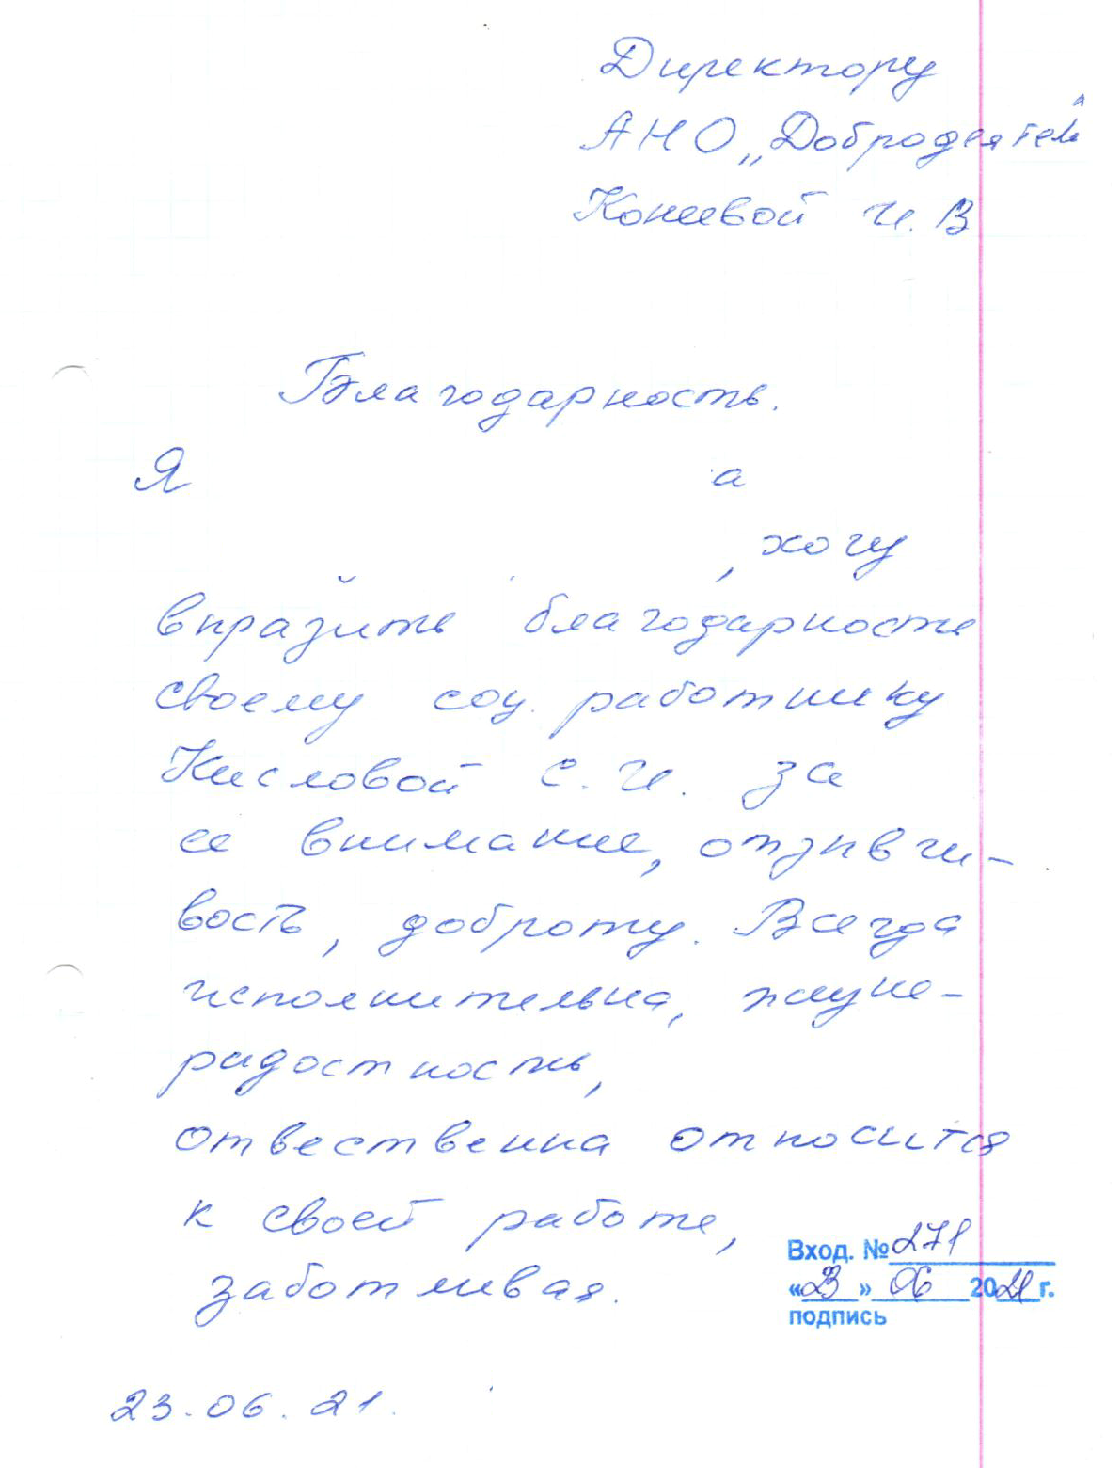 Директору
АНО „Добродеятель"
Коневой И. В
Благодарность.
Я а
, хочу
выразить благодарность
своему соц. работнику
Кисловой С. И. за
ее внимание, отзывчи-
вость, доброту. Всегда
исполнительна, жизне-
радостность,
отвественна относится
к своей работе,
заботливая.
Вход. № 271
«23» 06 2021 г.
подпись
23.06.21.